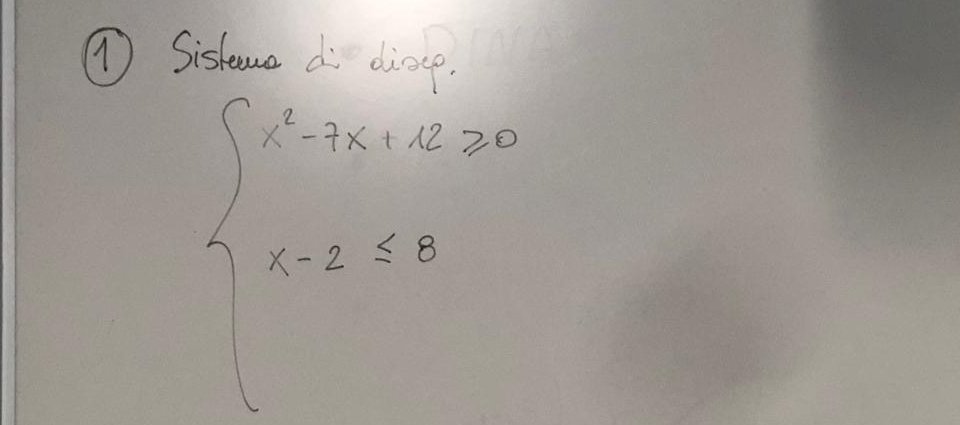 ① Sistema di diseq.
x² - 7x + 12 ⩾ 0
x - 2 ≤ 8